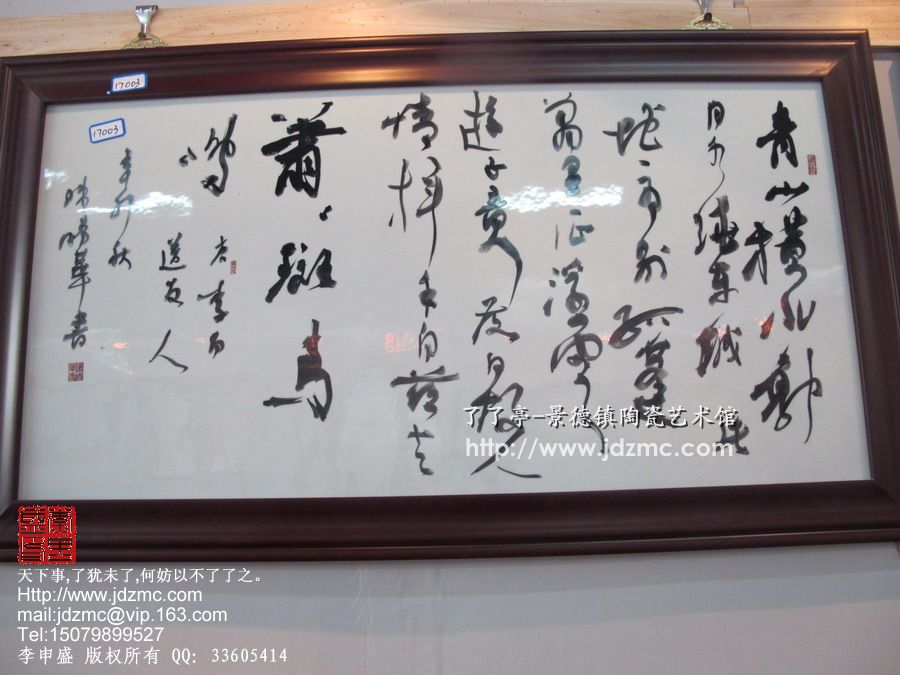 青山橫北郭
白水繞東城此
地一為別孤蓬
萬里征浮雲
遊子意落日故人
情揮手自茲去
蕭蕭斑馬
鳴
李白
送友人
辛卯秋
華書
17003
17003
了了亭-景德镇陶瓷艺术馆
http://www.jdzmc.com
天下事,了犹未了,何妨以不了了之。
Http://www.jdzmc.com
mail:jdzmc@vip.163.com
Tel:15079899527
李申盛 版权所有 QQ: 33605414